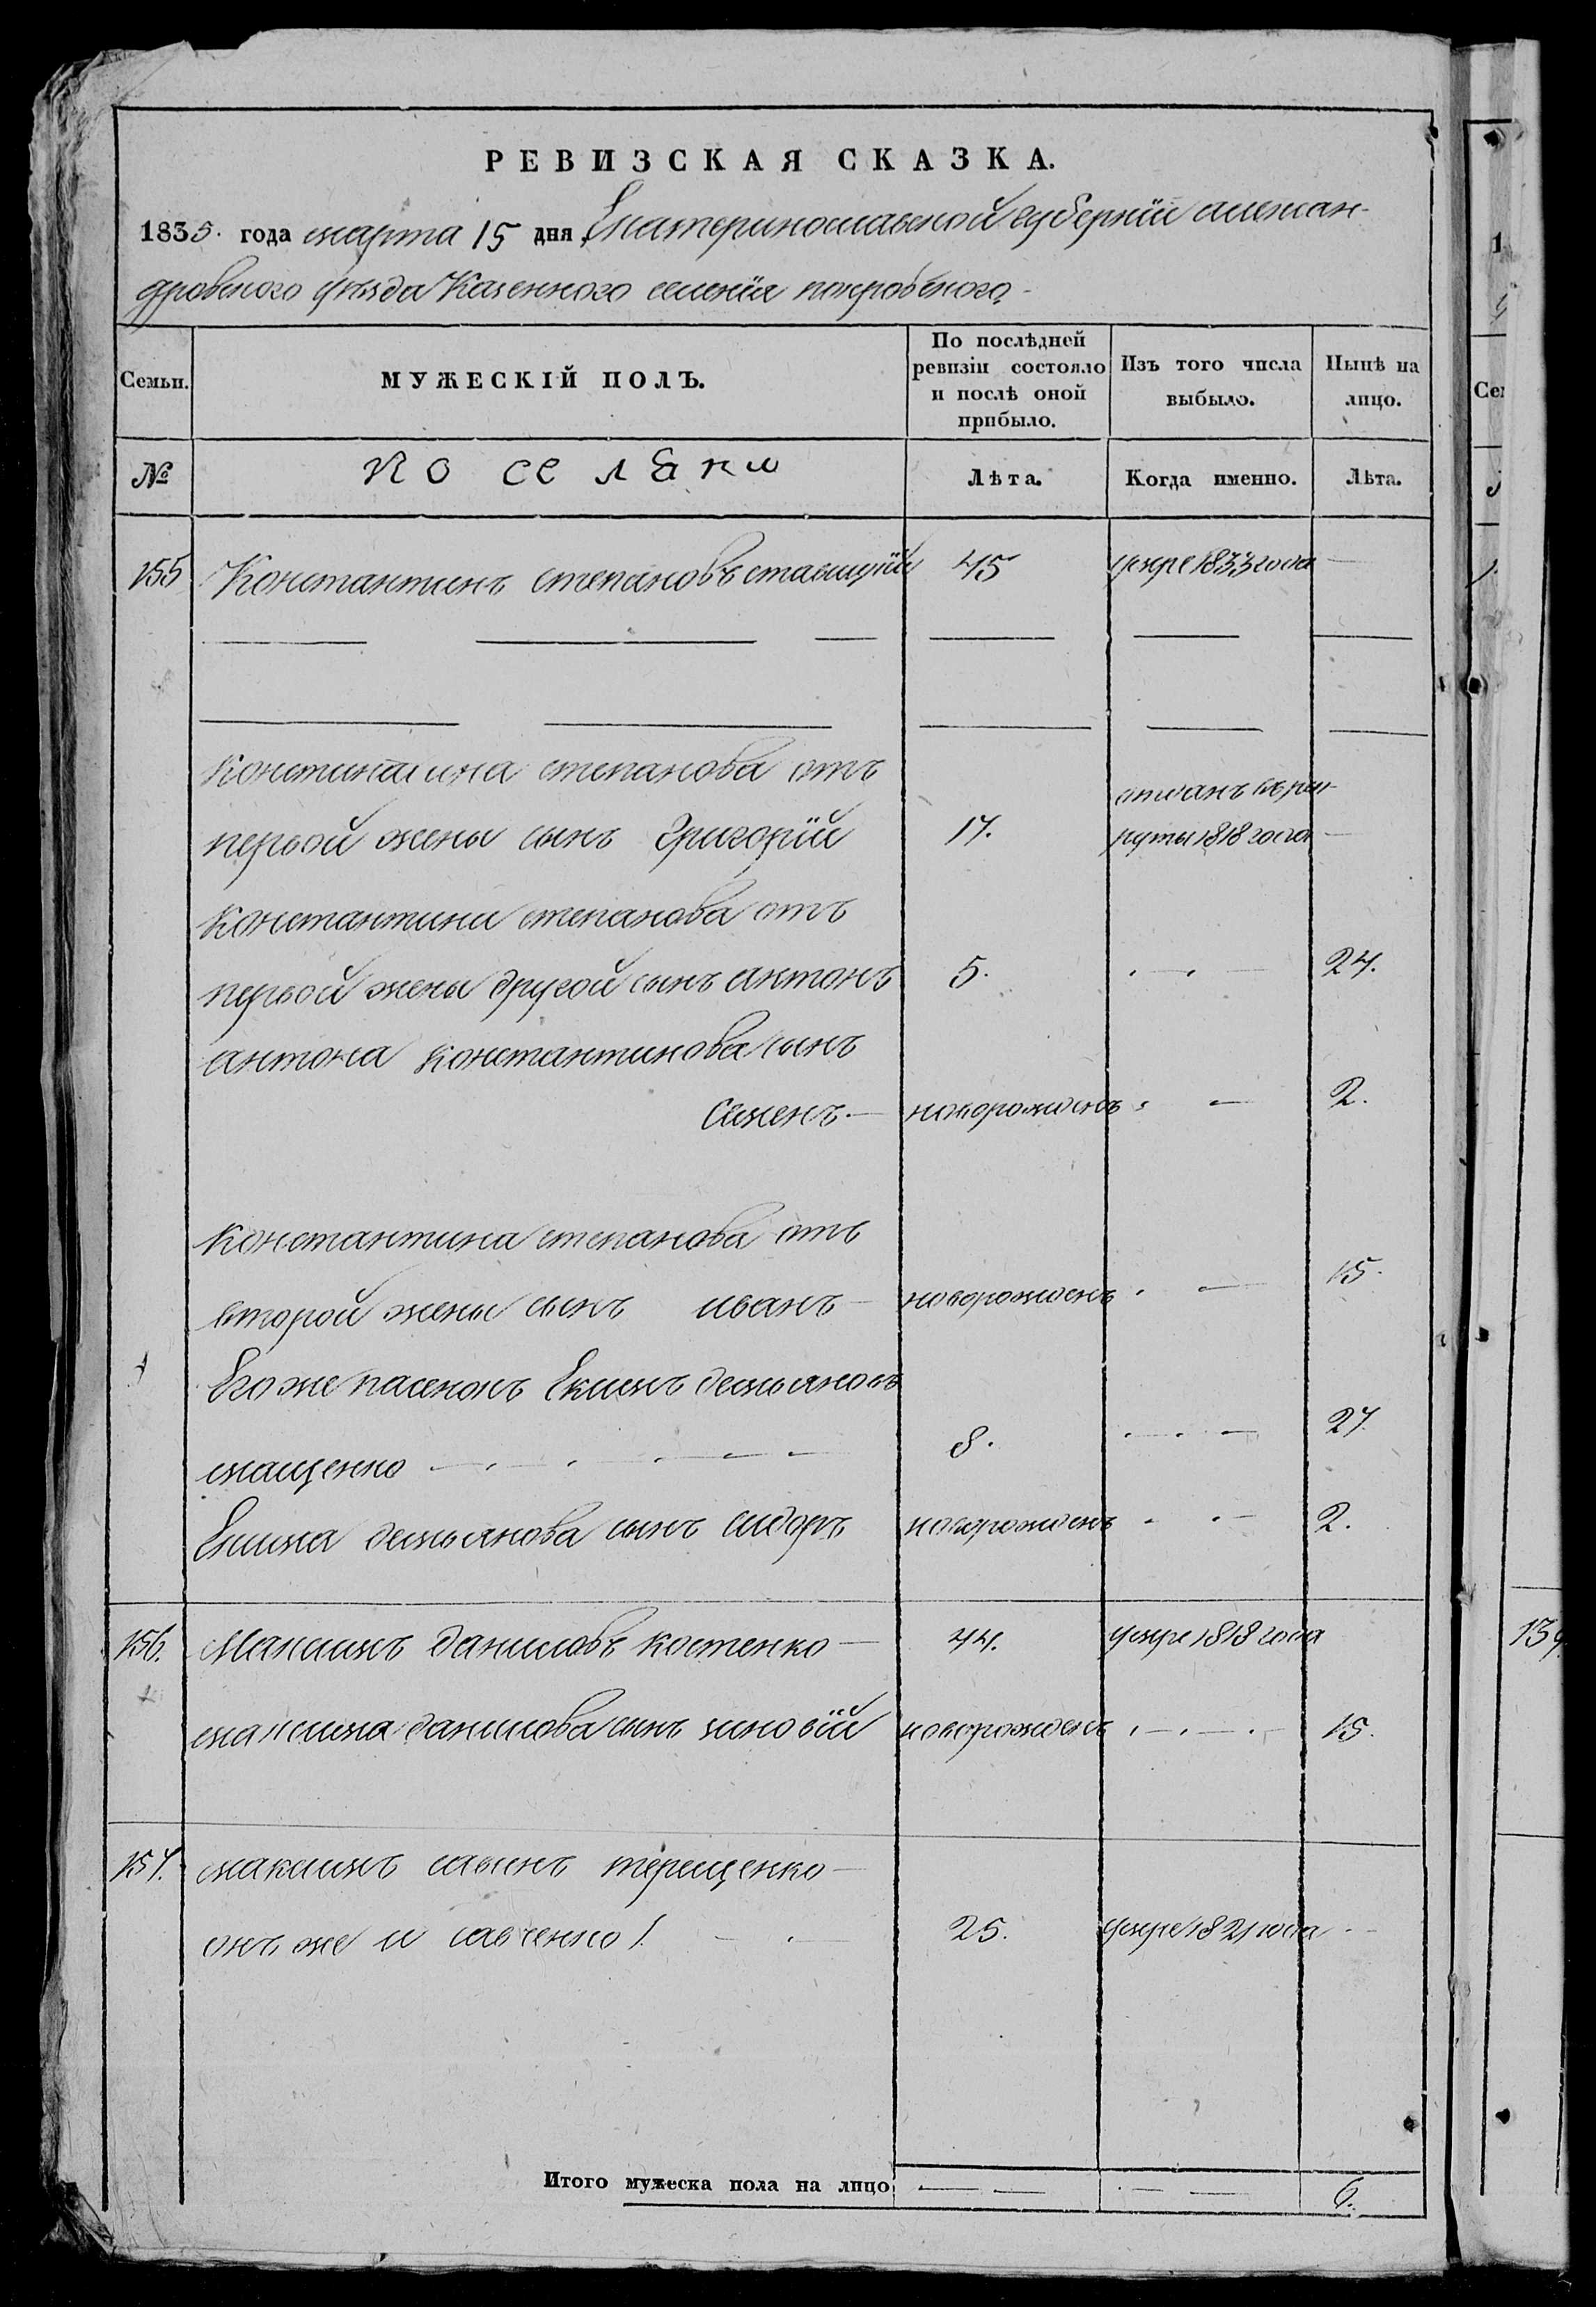 РЕВИЗСКАЯ СКАЗКА.
1835. года марта 15 дня Екатеринославской губернiи алексан-
дровского уѣзда Казенного селенiя покровского
Семьи.
МУЖЕСКIЙ ПОЛЪ.
По послѣдней ревизiи состояло и послѣ оной прибыло.
Изъ того числа выбыло.
Нынѣ на лицо.
№
поселяне
Лѣта.
Когда именно.
Лѣта.
155 Константинъ степановъ 45 умре 1833 года
Константина степанова отъ
первой жены сынъ Григорiй 17. отданъ въ рек-
руты 1818 года
Константина степанова отъ
первой жены другой сынъ антонъ 5. 24.
антона константинова сынъ
Семенъ новорожденъ 2.
Константина степанова отъ
второй жены сынъ иванъ новорожденъ 15.
Его же пасенокъ Екимъ демьяновъ
мащенко 8. 27.
Екима демьянова сынъ сидоръ новорожденъ 2.
156. Максимъ даниловъ костенко 44. умре 1818 года
максима данилова сынъ зиновiй новорожденъ 15.
157. максимъ савинъ терещенко
онъ же и савченко 25. умре 1821 года
Итого мужеска пола на лицо 6.
139